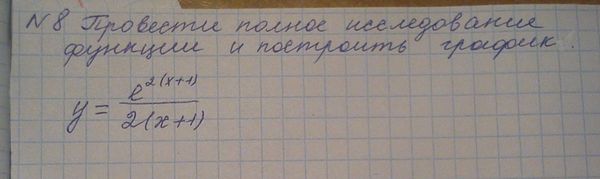 N8 Провести полное исследование
функции и построить график.
y = e^{2(x+1)} / 2(x+1)